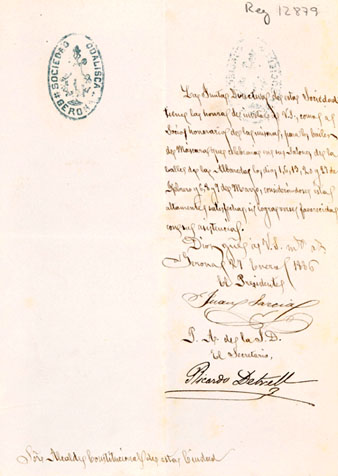 Reg 12879
SOCIEDAD ODALISCA
GERONA
La Junta Directiva de esta Sociedad
tiene la honra de invitar á V.S., como á
Socio honorario de la misma, para los bailes
de Máscaras que celebrará en sus salones de la
calle de las Albareda los dias
Febrero y 2, 9 de Marzo, considerandose
altamente satisfecha si logra verse favorecida
con su asistencia.
Dios gue á V.S. m. a.
Gerona 27 Enero 1886
El Presidente
Juan Garcia
P. A. de la J. D.
El Secretario,
Ricardo
Sor. Alcalde Constitucional de esta Ciudad